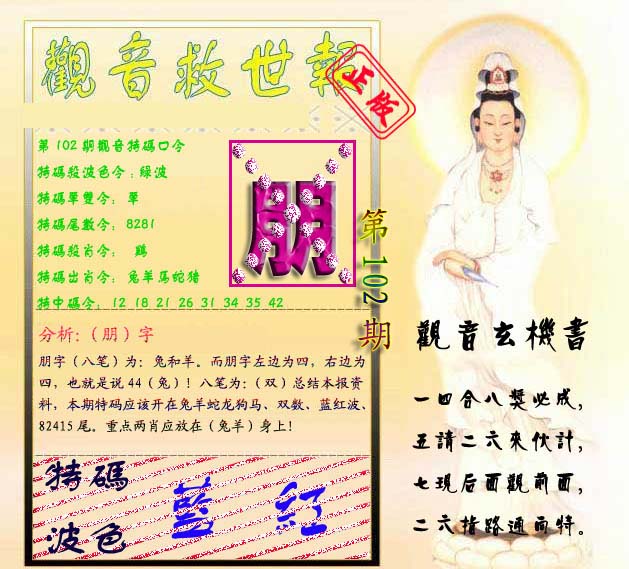 觀音救世報
正版
第102期觀音特碼口令
特碼殺波色令:綠波
特碼單雙令: 單
特碼尾數令: 8281
特碼殺肖令: 鷄
特碼出肖令: 兔羊馬蛇猪
特中碼令: 12 18 21 26 31 34 35 42
朋
第102期
分析:（朋）字
朋字（八笔）为：兔和羊。而朋字左边为四，右边为
四，也就是说44（兔）！八笔为：（双）总结本报资
料，本期特码应该开在兔羊蛇龙狗马、双数、蓝红波、
82415尾。重点两肖应放在（兔羊）身上！
特碼
波色
藍 紅
觀音玄機書
一四合八獎必成，
五請二六來伙計，
七現后面觀前面，
二六指路通而特。